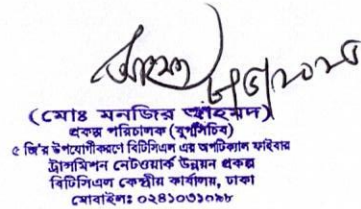 (মোঃ মনজির আহমদ)
প্রকল্প পরিচালক (যুগ্মসচিব)
৫ জি'র উপযোগীকরণে বিটিসিএল এর অপটিক্যাল ফাইবার
ট্রান্সমিশন নেটওয়ার্ক উন্নয়ন প্রকল্প
বিটিসিএল কেন্দ্রীয় কার্যালয়, ঢাকা
মোবাইলঃ ০২৪১০৩১০৯৮